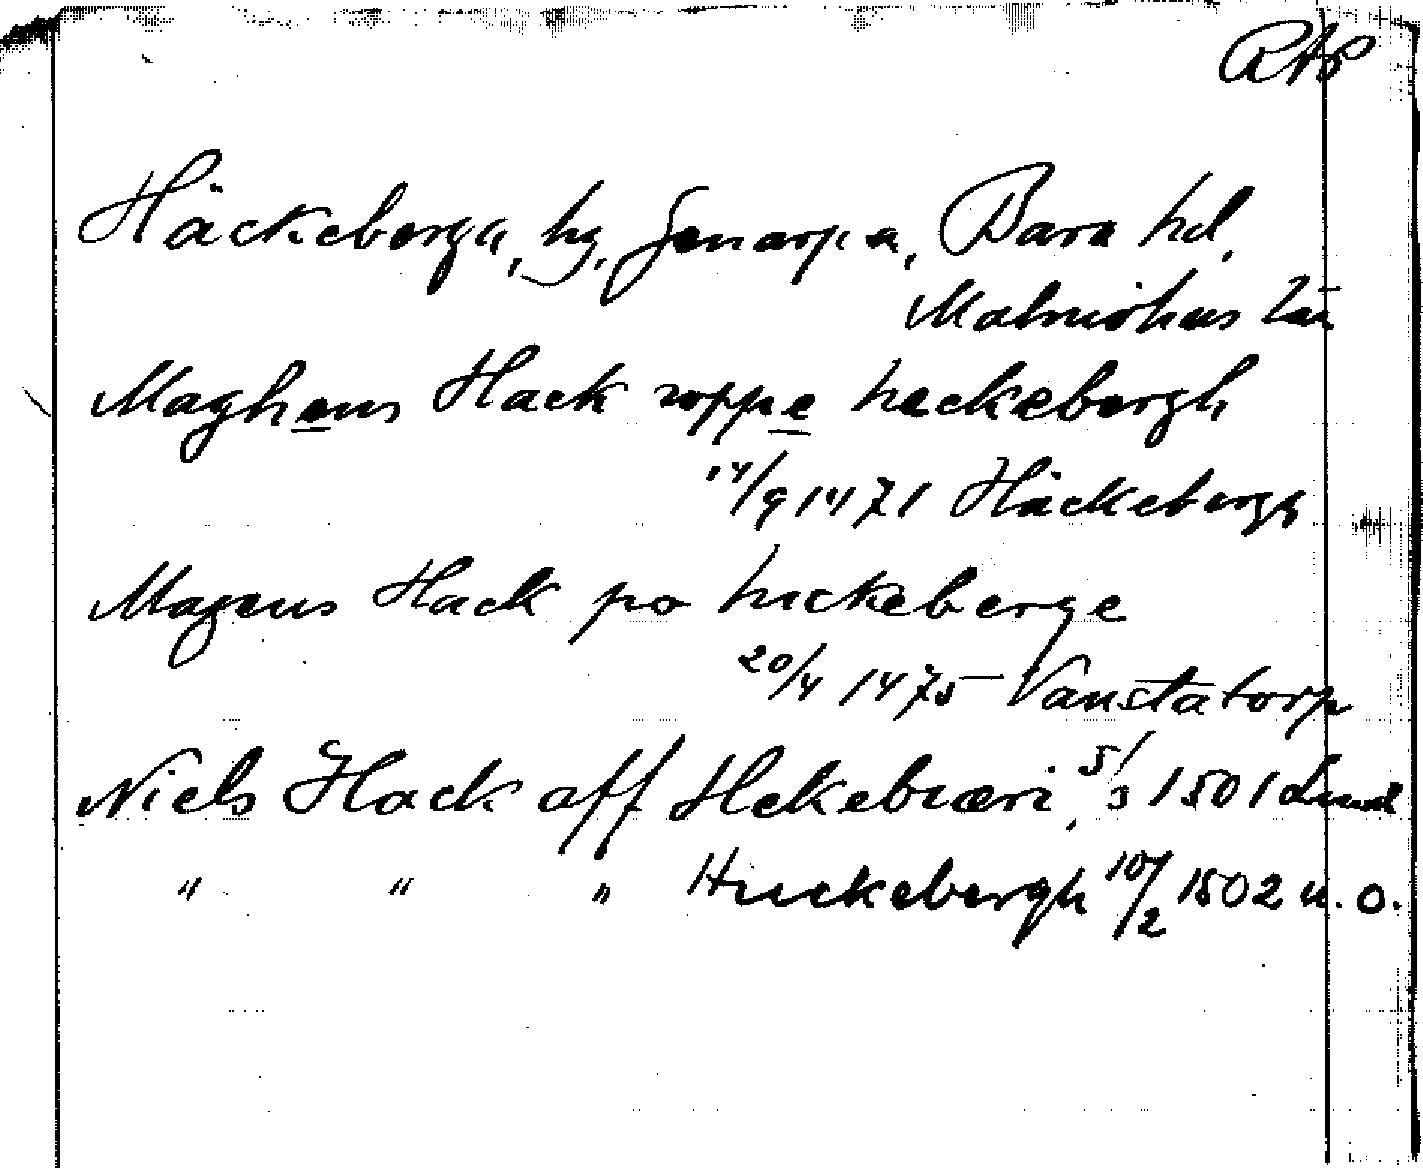 RAP
Häckeberga, hg, Genarps, Bara hd,
Malmöhus län
Maghens Hack wppe heckebergh
14/9 1471 Häckeberga
Magens Hack po heckeberge
20/4 1475 Vanstatorp
Niels Hack aff Hekebræri, 5/3 1501 Lund
" " " Heckebergh 10/2 1502 u. o.